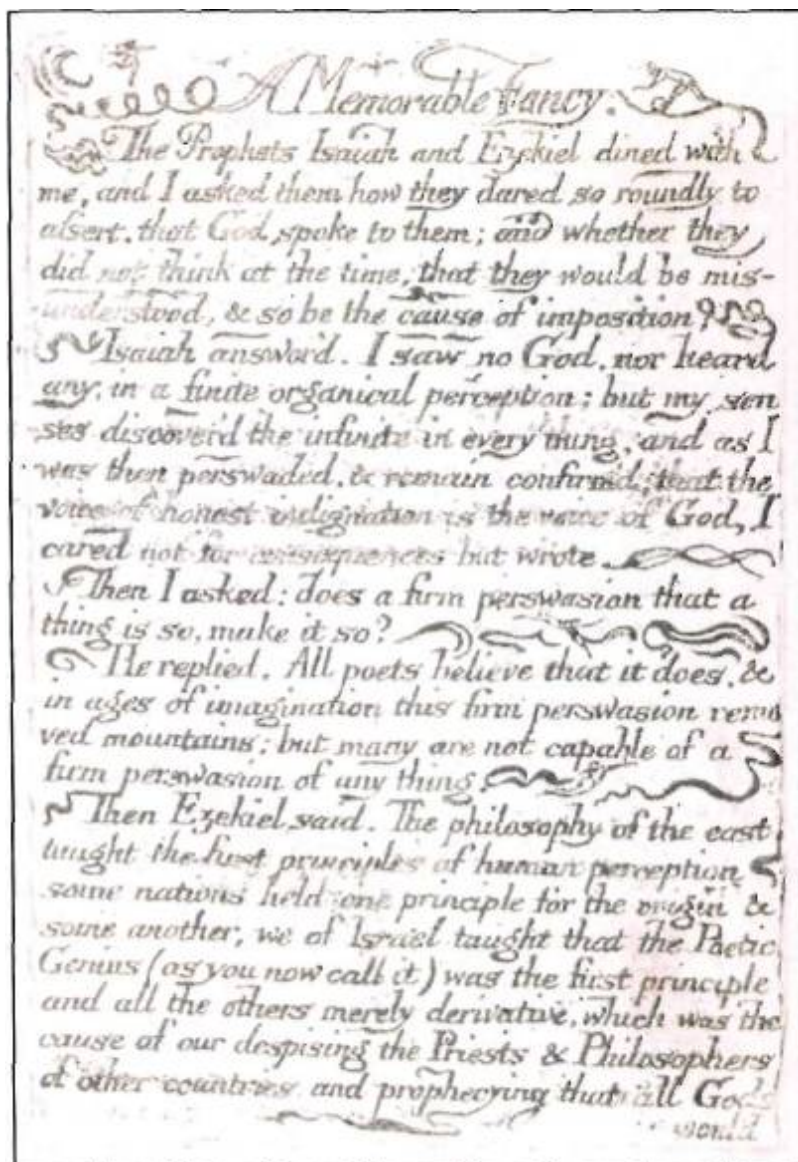 A Memorable Fancy.
The Prophets Isaiah and Ezekiel dined with
me, and I asked them how they dared so roundly to
assert. that God spoke to them; and whether they
did not think at the time, that they would be mis-
understood, & so be the cause of imposition?
Isaiah answer'd. I saw no God. nor heard
any, in a finite organical perception; but my sen
ses discover'd the infinite in every thing, and as I
was then perswaded. & remain confirmed; that the
voice of honest indignation is the voice of God, I
cared not for consequences but wrote.
Then I asked: does a firm perswasion that a
thing is so, make it so?
He replied. All poets believe that it does. &
in ages of imagination this firm perswasion remo
ved mountains; but many are not capable of a
firm perswasion of any thing.
Then Ezekiel said. The philosophy of the east
taught the first principles of human perception
some nations held one principle for the origin &
some another, we of Israel taught that the Poetic
Genius (as you now call it) was the first principle
and all the others merely derivative, which was the
cause of our despising the Priests & Philosophers
of other countries, and prophecying that all Gods
would